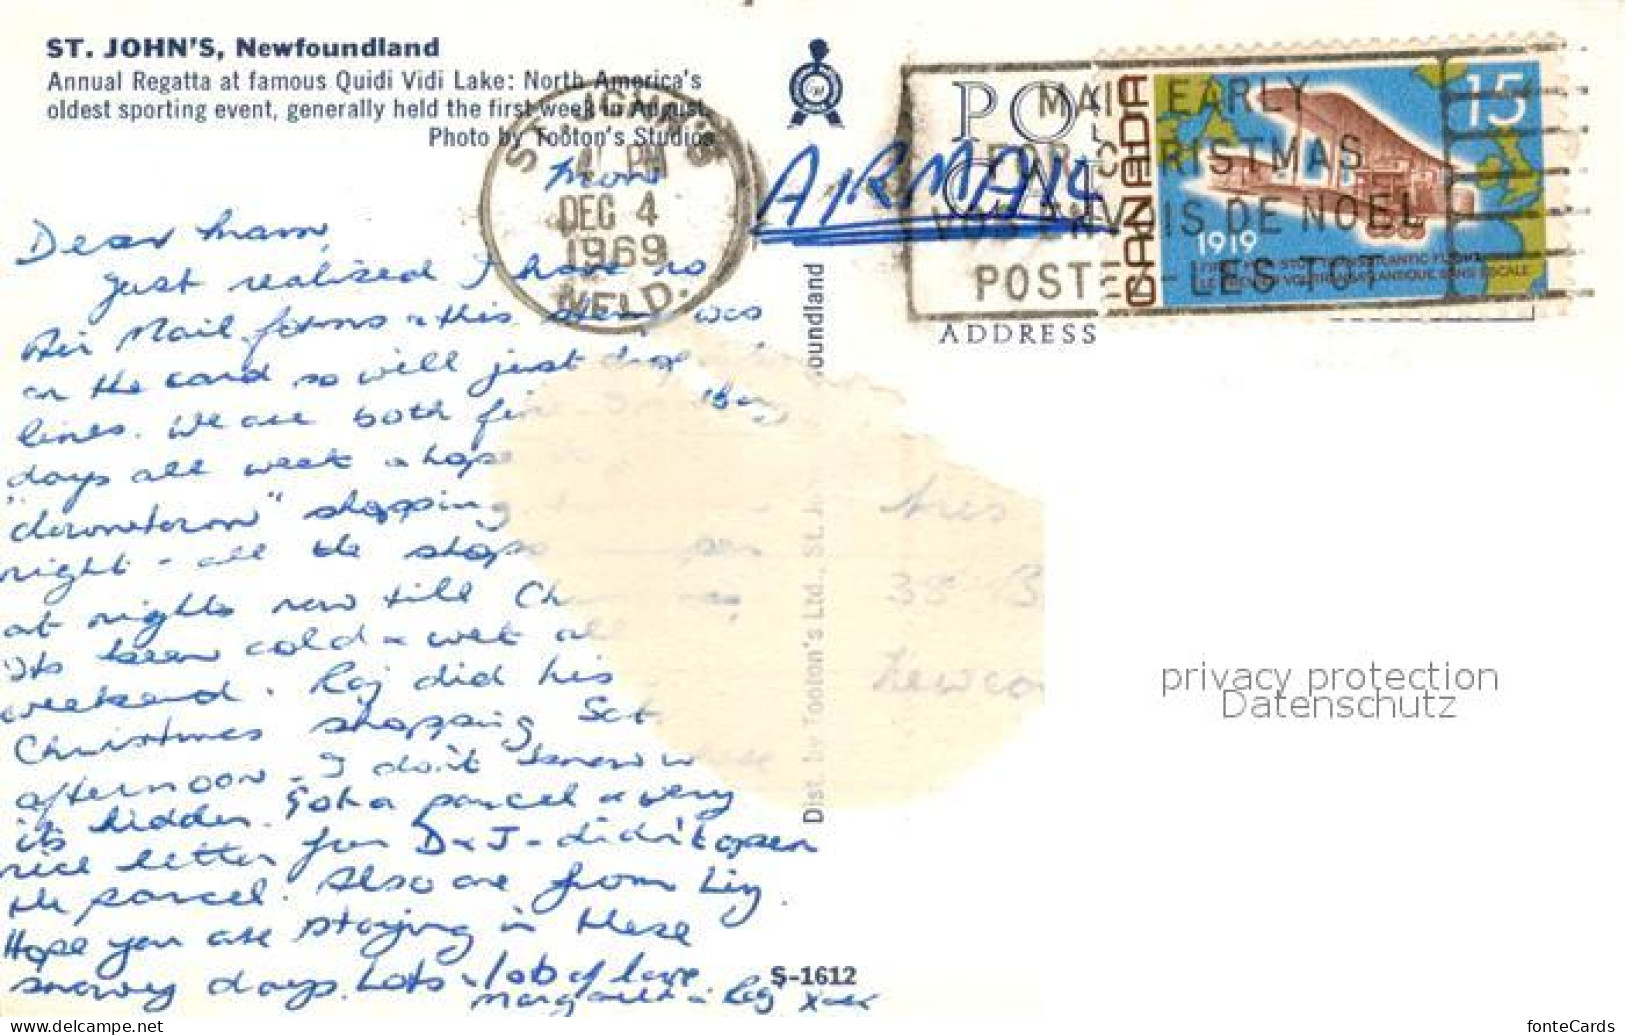 ST. JOHN'S, Newfoundland
Annual Regatta at famous Quidi Vidi Lake: North America's
oldest sporting event, generally held the first week in August.
Photo by Tooton's Studios
Mon
Dear Mam,
Just realised I have no
Air Mail forms & this stamp was
on the card so will just drop
lines. We are both fine
days all week & hope
"downtown" shopping
night - all the shops
at nights now till Ch
Its been cold & wet all
weekend. Raj did his
Christmas shopping Sat
afternoon - I don't know where
its hidden. Got a parcel & very
nice letter from D & J - didn't open
the parcel. Also one from Liz.
Hope you are staying in these
snowy days. Lots & lots of love
Margaret & Raj xxx
PM
DEC 4
1969
NFLD.
AIRMAIL
MAIL EARLY
FOR CHRISTMAS
VOS ENVOIS DE NOEL
POSTEZ-LES TOT
CANADA
15
1919
ADDRESS
38 B
Newca
Dist. by Tooton's Ltd., St. J oundland
S-1612
privacy protection
Datenschutz
www.delcampe.net
fonteCards